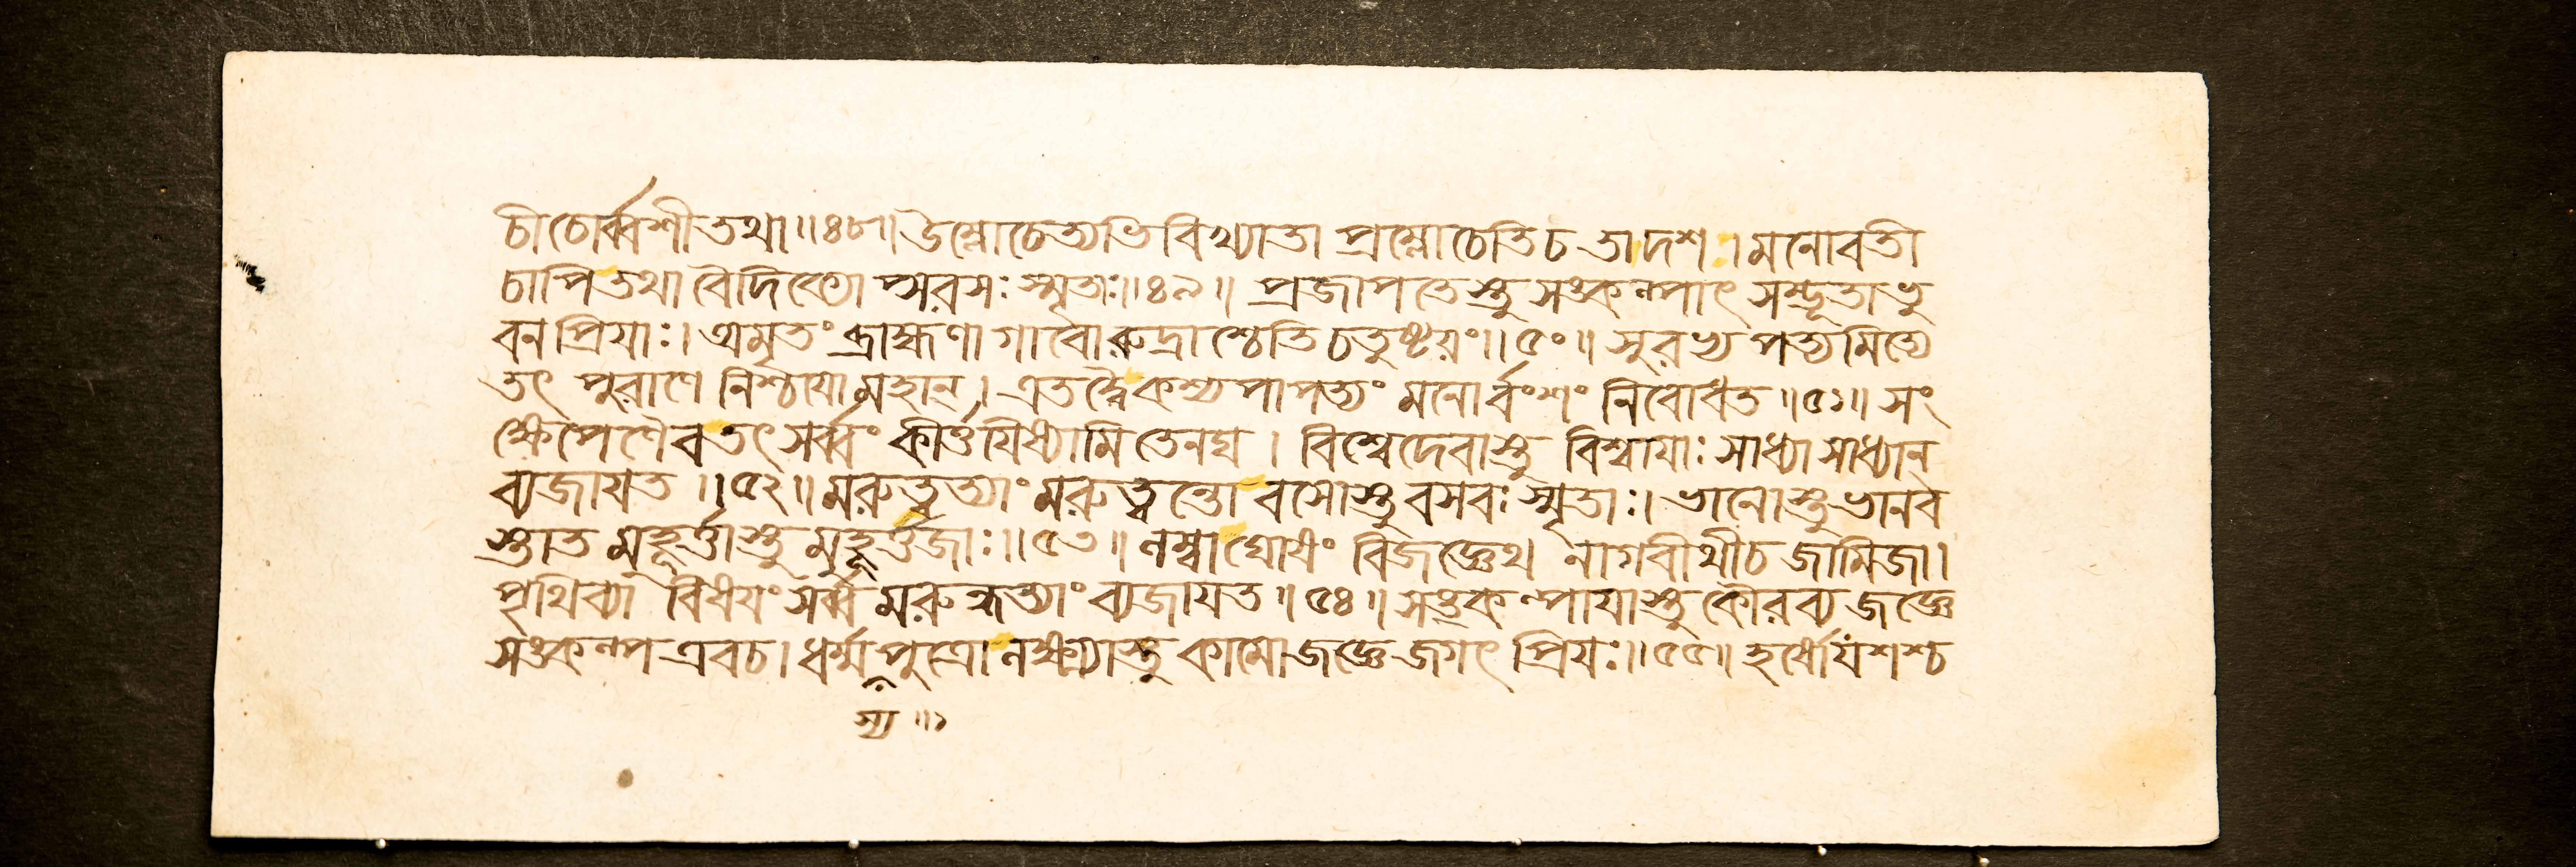 চীচোর্ব্বশীতথা॥৪৮॥উম্লোচেত্যভিবিখ্যাতা প্রম্লোচেতিচ তাদশ।মনোবতী
চাপিতথা বৈদিক্যোপ্সরসঃস্মৃতাঃ॥৪৯॥ প্রজাপতেস্তুসঙ্কল্পাৎ সম্ভূতাভু
বনপ্রিয়াঃ।অমৃতং ব্রাহ্মণা গাবোরুদ্রাশ্চেতিচতুষ্টয়ং॥৫০॥ সুরভ্য পত্যমিত্যে
তৎ পুরাণে নিশ্চয়োমহান্।এতদ্বৈকশ্যপাপত্যং মনোর্বংশং নিবোধত॥৫১॥ সং
ক্ষেপেণৈবতৎসর্ব্বং কীর্ত্তয়িষ্যামিতেনঘ। বিশ্বেদেবাস্তু বিশ্বায়াঃসাধ্যাসাধ্যান
ব্যজায়ত॥৫২॥মরুত্বত্যাংমরুত্বন্তো বসোস্তুবসবঃস্মৃতাঃ।ভানোস্তুভানব
স্তাত মূহূর্ত্তাস্তু মুহূর্ত্তজাঃ॥৫৩॥লম্বাঘোষং বিজজ্ঞেথ নাগবীথীচজামিজা।
পৃথিব্যা বিষয়ংসর্ব্ব মরুন্ধত্যাংব্যজায়ত॥৫৪॥সঙ্কল্পায়াস্তুকৌরব্যজজ্ঞে
সঙ্কল্প এবচ।ধর্ম্মপুত্রোলক্ষ্ম্যাস্তু কামোজজ্ঞেজগৎ প্রিয়ঃ॥৫৫॥হর্ষোযশশ্চ
স্য॥১